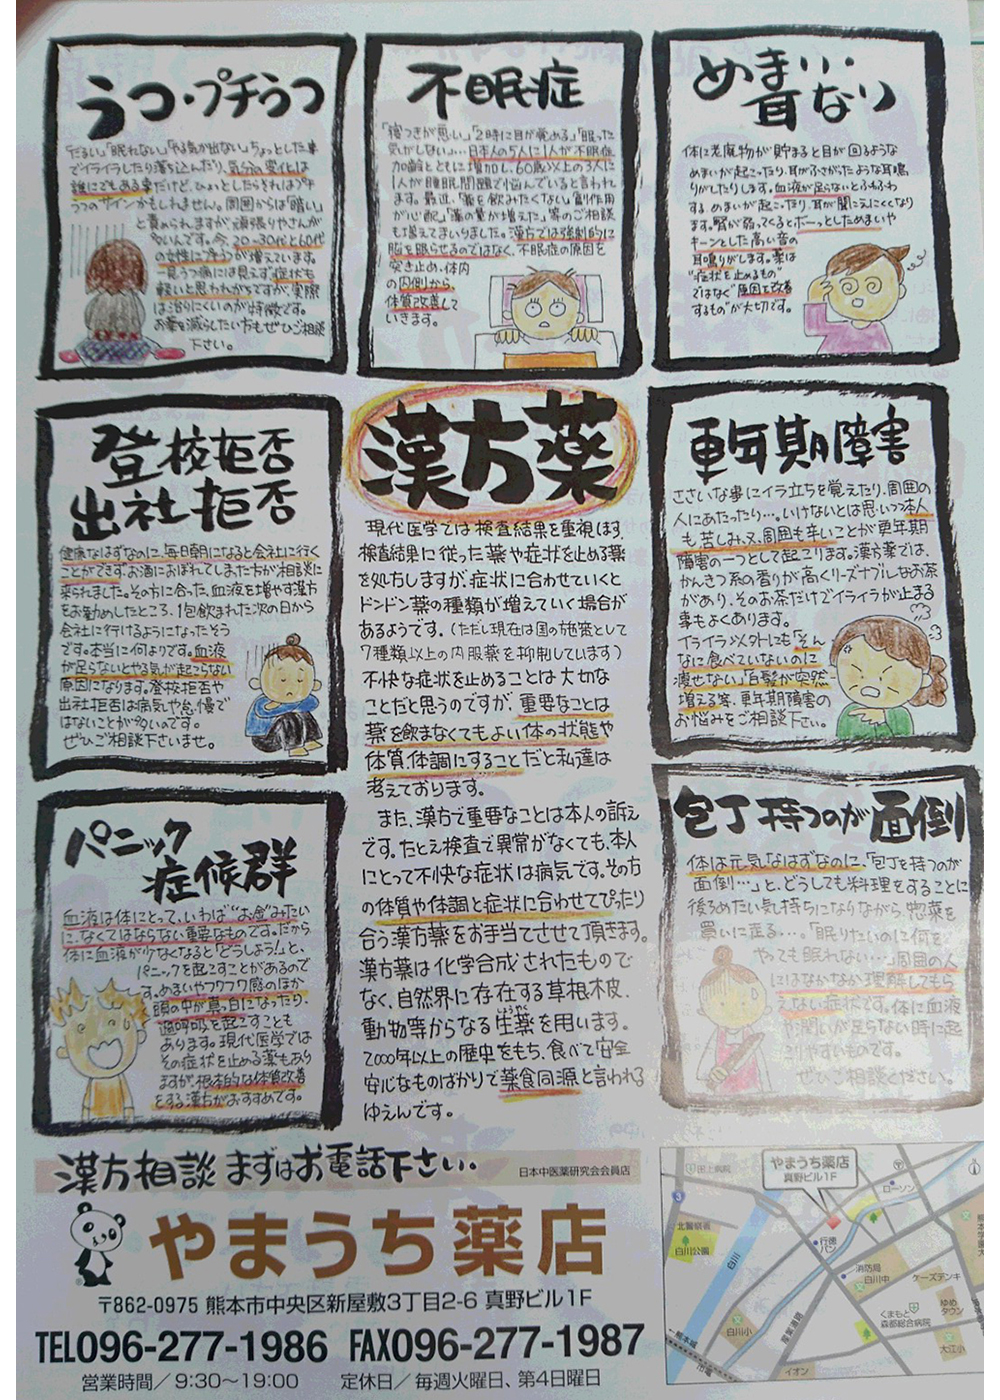 うつ・プチうつ
「だるい」「眠れない」「やる気が出ない」ちょっとした事
でイライラしたり落ち込んだり、気分の変化は
誰にでもある事だけど、ひょっとしたらそれはプチ
うつのサインかもしれません。周囲からは「暗い」
と責められますが、頑張りやさんが
多いんです。今、20~30代と60代
の女性にプチうつが増えています。
見うつ病には見えず、症状も
軽いと思われがちですが、実際
は治りにくいのが特徴です。
お薬を減らしたい方もぜひご相談
下さい。
不眠症
「寝つきが悪い」「2時に目が覚める」「眠った
気がしない」…日本人の5人に1人が不眠症
加齢とともに増加し、60歳以上の3人に
1人が睡眠問題で悩んでいると言われ
ます。最近、「薬を飲みたくない」「副作用
が心配」「薬の量が増えた」等のご相談
も増えてまいりました。漢方では強制的に
脳を眠らせるのではなく、不眠症の原因を
突き止め、体内
の内側から
体質改善して
いきます。
めまい・
耳なり
体に老廃物が貯まると目が回るような
めまいが起こったり、耳がふさがったような耳鳴
りがしたりします。血液が足らないとふわふわ
する、めまいが起こったり、耳が聞こえにくくなり
ます。腎が弱ってくるとボーッとしためまいや
キーンとした高い音の
耳鳴りがします。薬は
“症状を止めるもの”
ではなく“原因を改善
するもの”が大切です。
登校拒否
出社拒否
健康なはずなのに、毎日朝になると会社に行く
ことができず、お酒におぼれてしまった方が相談に
来られました。その方に合った、血液を増やす漢方
をお勧めしたところ、1包飲まれた次の日から
会社に行けるようになったそう
です。本当に何よりです。血液
が足らないとやる気が起こらない
原因になります。登校拒否や
出社拒否は病気や怠慢で
はないことが多いのです。
ぜひご相談下さいませ。
漢方薬
現代医学では検査結果を重視します。
検査結果に従った薬や症状を止める薬
を処方しますが、症状に合わせていくと
ドンドン薬の種類が増えていく場合が
あるようです。(ただし現在は国の施策として
7種類以上の内服薬を抑制しています)
不快な症状を止めることは大切な
ことだと思うのですが、重要なことは
薬を飲まなくてもよい体の状態や
体質体調にすることだと私達は
考えております。
また、漢方で重要なことは本人の訴え
です。たとえ検査で異常がなくても、本人
にとって不快な症状は病気です。その方
の体質や体調と症状に合わせてぴったり
合う漢方薬をお手当てさせて頂きます。
漢方薬は化学合成されたもので
なく、自然界に存在する草根木皮、
動物等からなる生薬を用います。
2000年以上の歴史をもち、食べて安全
安心なものばかりで薬食同源と言われる
ゆえんです。
更年期障害
ささいな事にイラ立ちを覚えたり、周囲の
人にあたったり…。いけないとは思いつつ本人
も苦しみ、又、周囲も辛いことが更年期
障害の一つとして起こります。漢方薬では、
かんきつ系の香りが高くリーズナブルなお茶
があり、そのお茶だけでイライラが止まる
事もよくあります。
イライラ以外にも「そん
なに食べていないのに
痩せない」「白髪が突然
増える等、更年期障害の
お悩みをご相談下さい。
パニック
症候群
血液は体にとって、いわば“お金”みたい
に、なくてはならない重要なものです。だから
体に血液が少なくなると「どうしよう!」と、
パニックを起こすことがあるので
す。めまいやフワフワ感のほか
頭の中が真っ白になったり、
過呼吸を起こすことも
あります。現代医学では
その症状を止める薬もあり
ますが、根本的な体質改善
をする漢方がおすすめです。
包丁持つのが面倒
体は元気なはずなのに、「包丁を持つのが
面倒…」と、どうしても料理をすることに
後ろめたい気持ちになりながら、惣菜を
買いに走る…。「眠りたいのに何を
やっても眠れない…」周囲の人
にはなかなか理解してもら
えない症状です。体に血液
や潤いが足らない時に起
こりやすいものです。
ぜひご相談ください。
漢方相談 まずはお電話下さい…
日本中医薬研究会会員店
やまうち薬店
〒862-0975 熊本市中央区新屋敷3丁目2-6 真野ビル1F
TEL096-277-1986 FAX096-277-1987
営業時間/9:30~19:00 定休日/毎週火曜日、第4日曜日
やまうち薬店
真野ビル1F
田上病院
ローソン
3
北警察署
白川公園
白川
行徳
パン
消防局
白川中
ケーズデンキ
くまもと
森都総合病院
ゆめ
タウン
大江小
白川小
産業道路
イオン
熊本城
市役所